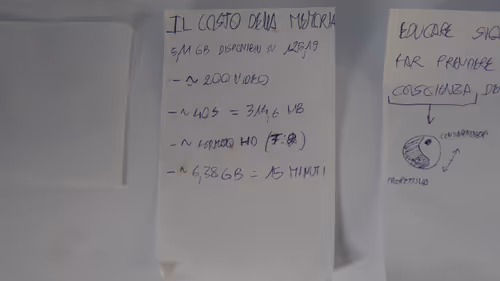 IL COSTO DELLA MEMORIA
5,11 GB DISPONIBILI SU
- ~ 200 VIDEO
- ~ 40S = 314,6 MB
- ~ HD
- ~ 6,38 GB = 15 MINUTI
EDUCARE
FAR PRENDERE
COSCIENZA